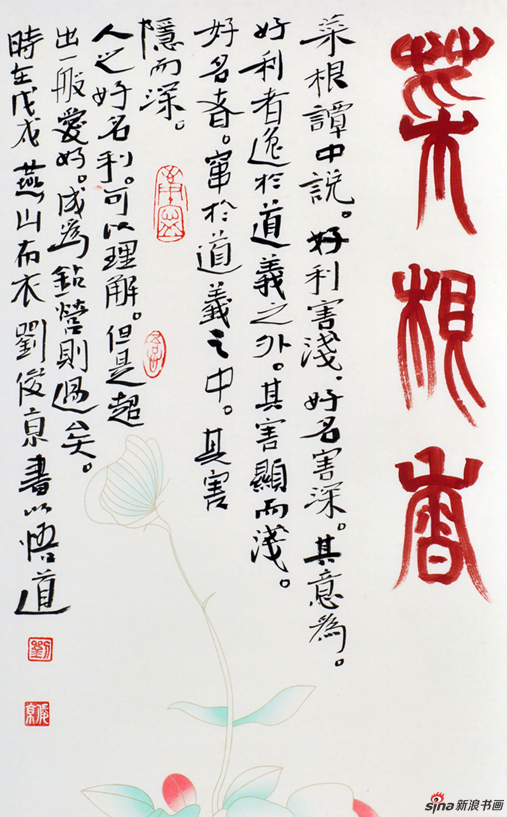 菜根香
菜根譚中說。好利害淺。好名害深。其意為。
好利者逸於道義之外。其害顯而淺。
好名者。竄於道義之中。其害
隱而深。
人之好名利。可以理解。但是超
出一般愛好。成為鉆營則過矣。
時在戊戌燕山布衣劉俊京書以悟道
劉
俊京
sina新浪书画